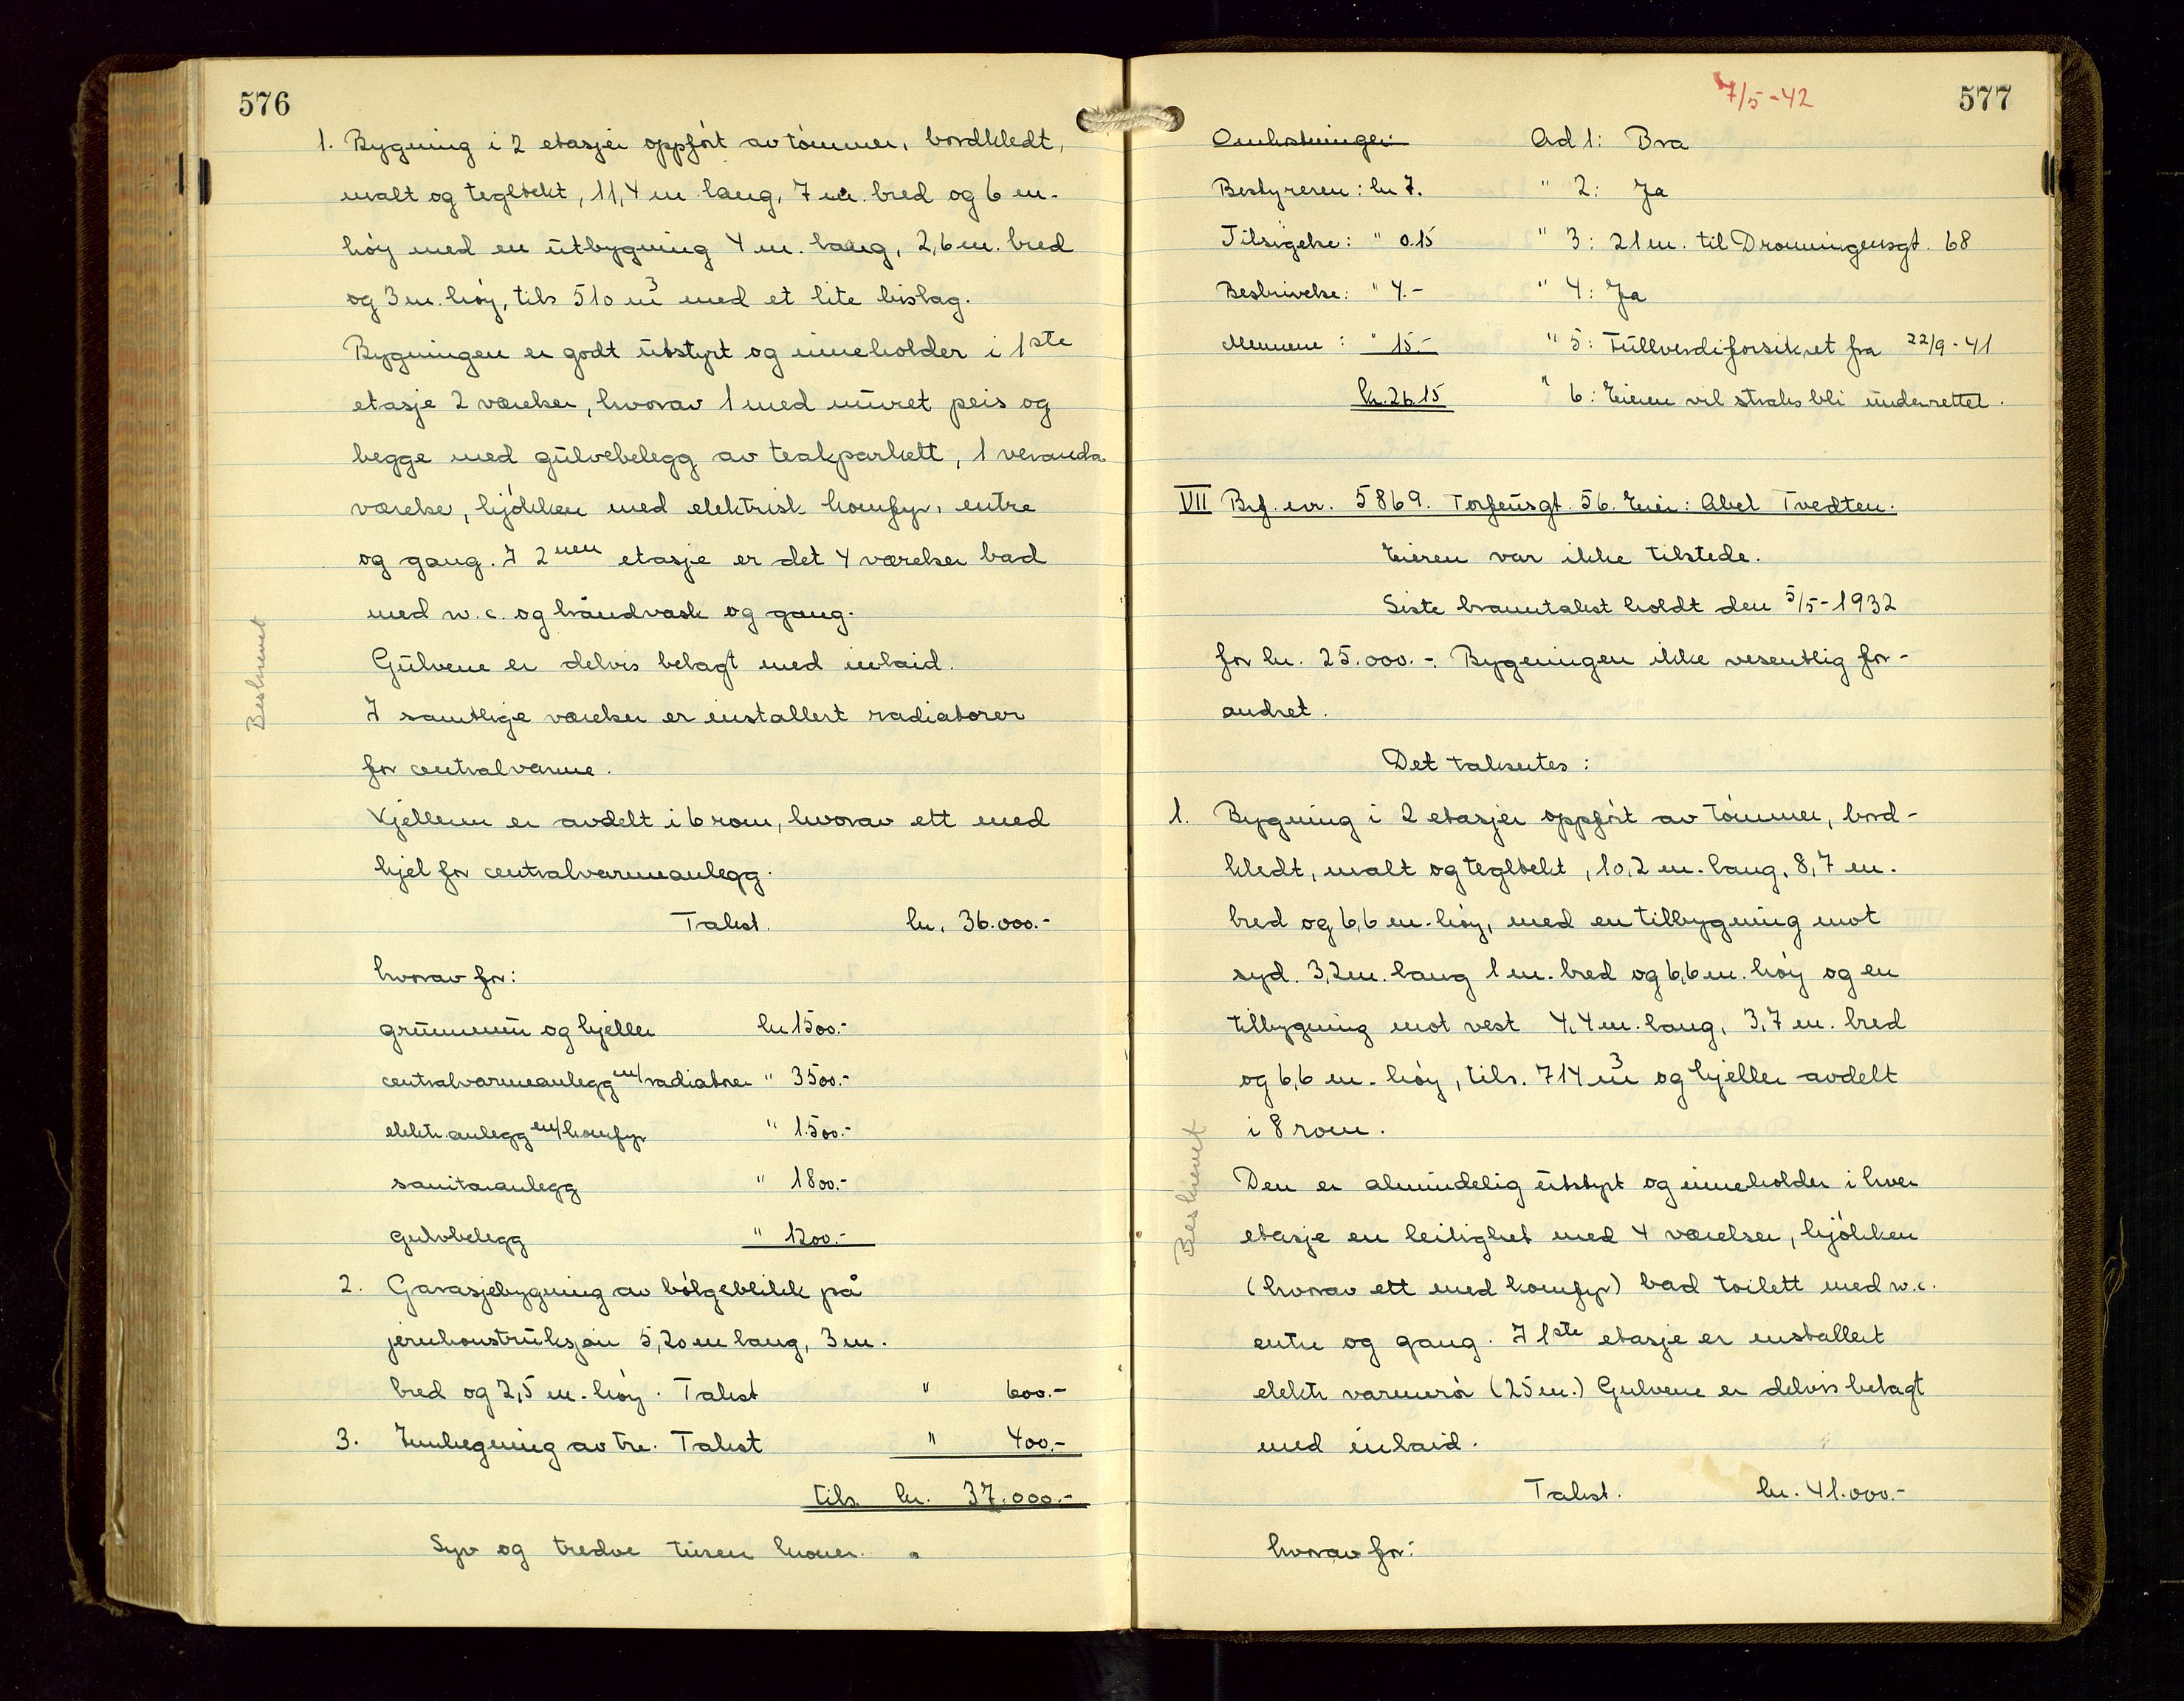 576
1. Bygning i 2 etasjer oppført av tømmer, bordkledt,
malt og tegltekt, 11,4 m lang, 7 m. bred og 6 m.
høy med en utbygning 4 m. lang, 2,6 m. bred
og 3 m. høy, tils 510 m³ med et lite bislag.
Bygningen er godt utstyrt og inneholder i 1ste
etasje 2 værelser, hvorav 1 med muret peis og
begge med gulvebelegg av teakparkett, 1 veranda
værelse, kjøkken med elektrisk komfyr, entre
og gang. I 2nen etasje er det 4 værelser bad
med w.c. og håndvask og gang.
Gulvene er delvis belagt med inlaid.
I samtlige værelser er installert radiatorer
for centralvarme.
Kjelleren er avdelt i 6 rom, hvorav ett med
kjel for centralvarmeanlegg.
Takst. kr. 36.000.-
hvorav for:
grunnmur og kjeller kr 1500.-
centralvarmeanlegg m/radiatorer " 3500.-
elektr. anlegg m/komfyr " 1.500.-
sanitæranlegg " 1800.-
gulvbelegg " 1200.-
2. Garasjebygning av bølgeblikk på
jernkonstruksjon 5,20 m lang, 3 m.
bred og 2,5 m. høy. Takst " 600.-
3. Innhegning av tre. Takst " 400.-
tils. kr. 37.000.-
Syv og tredve tusen kroner.
Beskrevet
7/5-42
577
Omkostninger: Ad 1: Bra
Bestyreren: kr 7. " 2: Ja
Tilsigelse: " 0.15 " 3: 21 m. til Dronningensgt. 68
Beskrivelse: " 4.- " 4: Ja
Mennene: " 15.- " 5: Fullverdiforsikret fra 22/9-41
kr. 26.15 " 6: Eieren vil straks bli underrettet.
VII Brf. nr. 5869. Torfeusgt. 56. Eier: Abel Tvedten.
Eieren var ikke tilstede.
Siste branntakst holdt den 5/5-1932
for kr. 25.000.-. Bygningen ikke vesentlig for-
andret.
Det takseres:
1. Bygning i 2 etasjer oppført av tømmer, bord-
kledt, malt og tegltekt, 10,2 m. lang, 8,7 m.
bred og 6,6 m. høy, med en tilbygning mot
syd. 3,2 m. lang 1 m. bred og 6,6 m. høy og en
tilbygning mot vest 4,4 m. lang, 3,7 m. bred
og 6,6 m. høy, tils. 714 m³ og kjeller avdelt
i 8 rom.
Den er almindelig utstyrt og inneholder i hver
etasje en leilighet med 4 værelser, kjøkken
(hvorav ett med komfyr) bad toilett med w.c.
entre og gang. I 1ste etasje er installert
elektr varmerør (25 m.) Gulvene er delvis belagt
med inlaid.
Takst. kr. 41.000.-
hvorav for:
Beskrevet